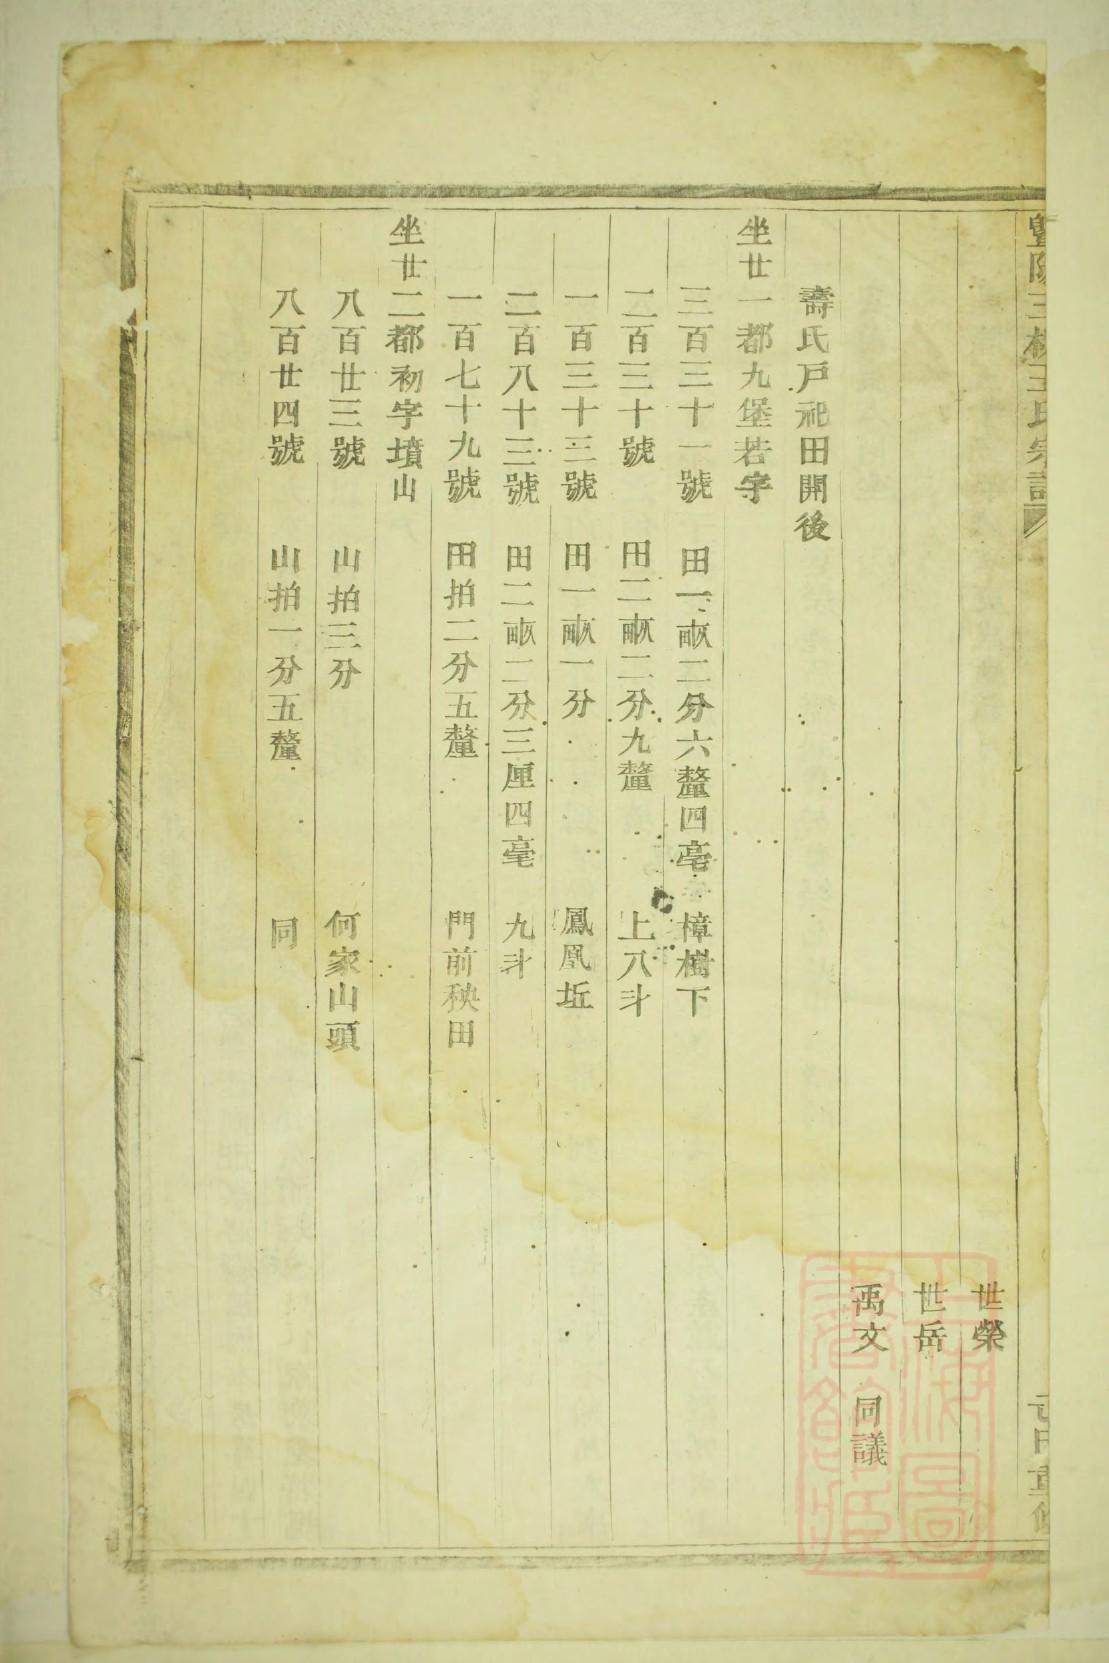 世榮
世岳
禹文 同議
壽氏戸祀田開後
坐廿一都九堡若字
三百三十一號 田一畝二分六釐四毫 樟樹下
二百三十號 田二畝二分九釐 上八斗
一百三十三號 田一畝一分 鳳凰坵
二百八十三號 田二畝二分三厘四毫 九斗
一百七十九號 田拍二分五釐 門前秧田
坐廿二都初字墳山
八百廿三號 山拍三分 何家山頭
八百廿四號 山拍一分五釐 同
上海圖書館藏